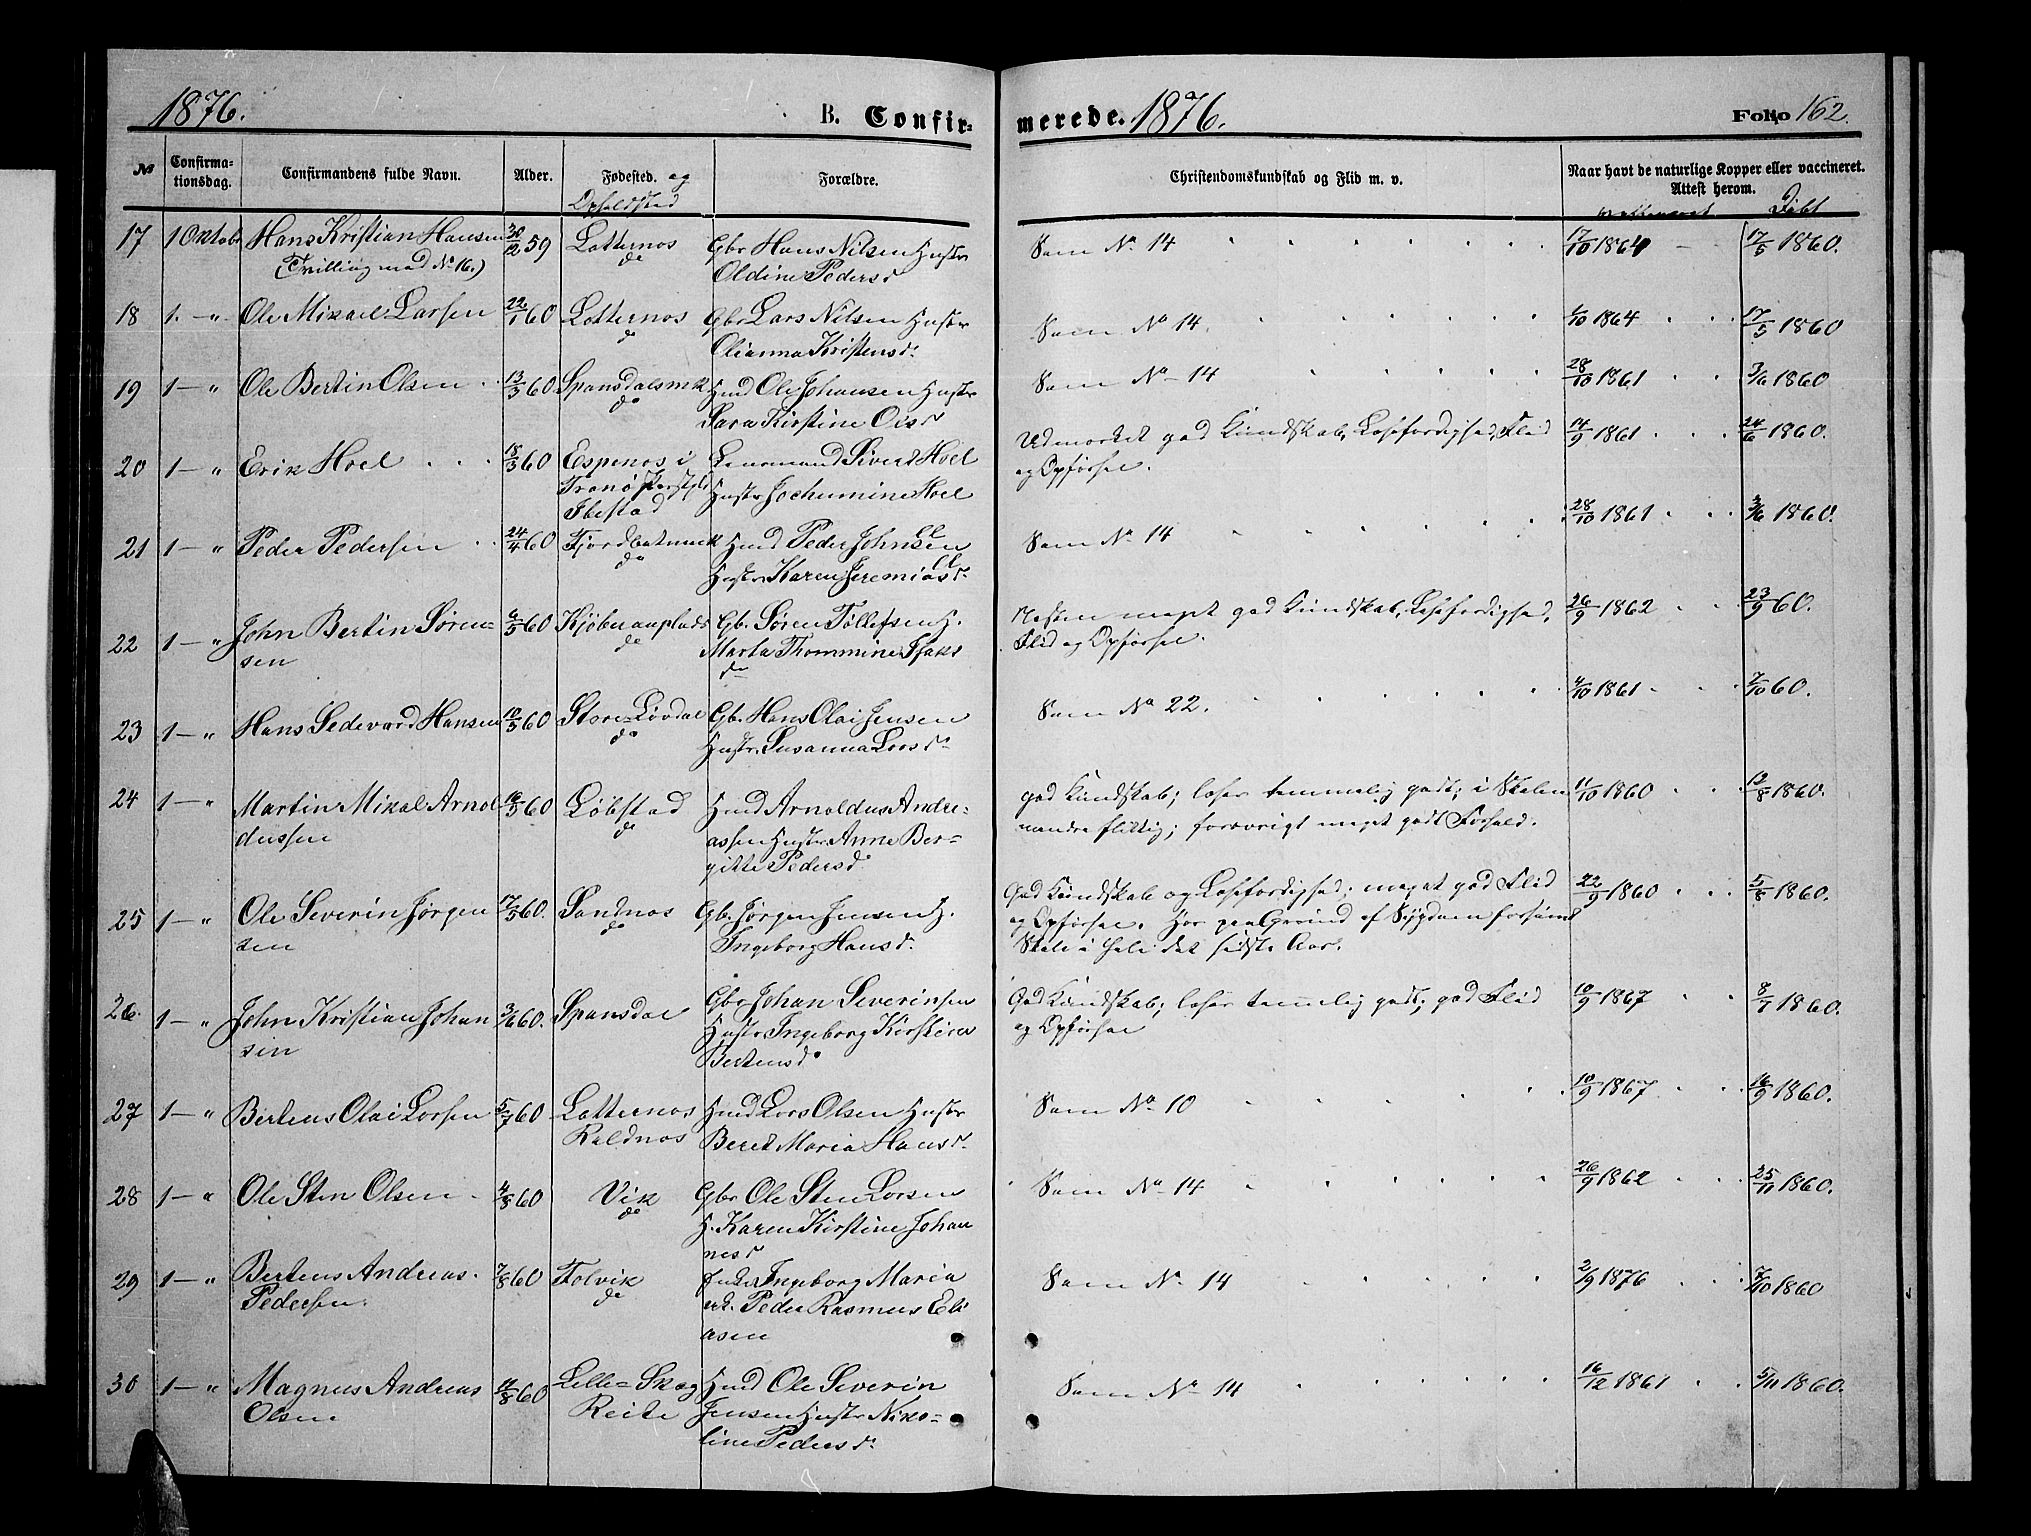 1876.
B. Confir-
merede. 1876.
Folio 162.
No
Confirma-
tionsdag.
Confirmandens fulde Navn.
Alder.
Fødested. og
Opholdsted
Forældre.
Christendomskundskab og Flid m. v.
Naar havt de naturlige Kopper eller vaccineret.
Attest herom.
Døbt
17 1 Oktobr Hans Kristian Hansen 30/12 59 Lotternes Gbr Hans Nilsen Hustr Som No 14 17/10 1864 17/5 1860.
(Tvilling med No 16.) do Oldine Pedersd
18 1. — " Ole Mikael Larsen 22/1 60 Lotternes Gbr Lars Nilsen Hustr Som No 14. 1864 17/5 1860
do Olianna Kristensd.
19 1 — " Ole Bertin Olsen 13/3 60 Spansdalsmk Hmd Ole Johansen Hustr Som No 14 28/10 1861 3/6 1860
do Sara Kirstine Olsd
20 1 — " Erik Hoel 18/3 60 Espenes i Lensmand Sivert Hoel Udmerket god Kundskab, Læsefærdighed, Flid 14/9 1861 24/6 1860.
Tranø Hustr Jochumine Hoel og Opførsel.
Ibestad
21 1 — " Peder Pedersen 24/4 60 Fjordbotmark Hmd Peder Johnsen Som No 14 28/10 1861 3/6 1860.
do Hustr Karen Jeremiasd.
22 1 — " John Bertin Søren- 60 Gb. Søren Tollefsen H. Næsten meget god Kundskab, Læsefærdighed, 26/9 1862 23/9 60.
sen do Marta Thommine Isaks Flid og Opførsel.
d
23 1 — " Hans Sedevard Hansen 10/5 60 Store-Løvdal Gb. Hans Olai Jensen Som No 22. 4/10 1861 7/10 60.
do Hustr. Susanna Larsd.
24 1 — " Martin Mikal Arnol 16/5 60 Løbstad Hmd Arnoldus Andre- god Kundskab; læser temmelig godt; i Skolen 11/10 1860 12/8 1860.
dussen do assen Hustr. Anne Ber- mindre flittig; forøvrigt meget godt Forhold.
gitte Pedersd.
25 1 — " Ole Severin Jørgen 17/5 60. Sandnes Gb. Jørgen Jensen H. God Kundskab og Læsefærdighed; meget god Flid 22/9 1860 5/8 1860.
sen do Ingeborg Hansd. og Opførsel. Har paa Grund af Sygdom forsømt
Skole i hele det sidste Aar.
26. 1 — " John Kristian Johan 3/6 60. Spansdal Gbr Johan Severinsen God Kundskab; læser temmelig godt; god Flid 10/9 1867 8/7 1860.
sen Hustr Ingeborg Kirstine og Opførsel
Bertensd.
27 1 — " Bertens Olai Larsen 5/7 60 Lotternes Hmd Lars Olsen Hustr Som No 10 10/9 1867 16/9 1860.
Raldnes Beret Maria Hansd.
28 1 — " Ole Sten Olsen 4/8 60 Vik Gbr Ole Sten Larsen Som No 14 26/9 1862 25/11 1860.
do H. Karen Kirstine Johan
nesd
29 1 — " Bertens Andreas 7/8 60 Folvik Enke Ingeborg Maria Som No 14 2/9 1876 7/10 1860
Pedersen. do Peder Rasmus Eli
asen
30 1 — " Magnus Andreas 11/8 60 Lille-Skog Hmd Ole Severin Som No 14 16/12 1861 5/11 1860.
Olsen Reite Jensen Hustr Niko-
line Pedersd.